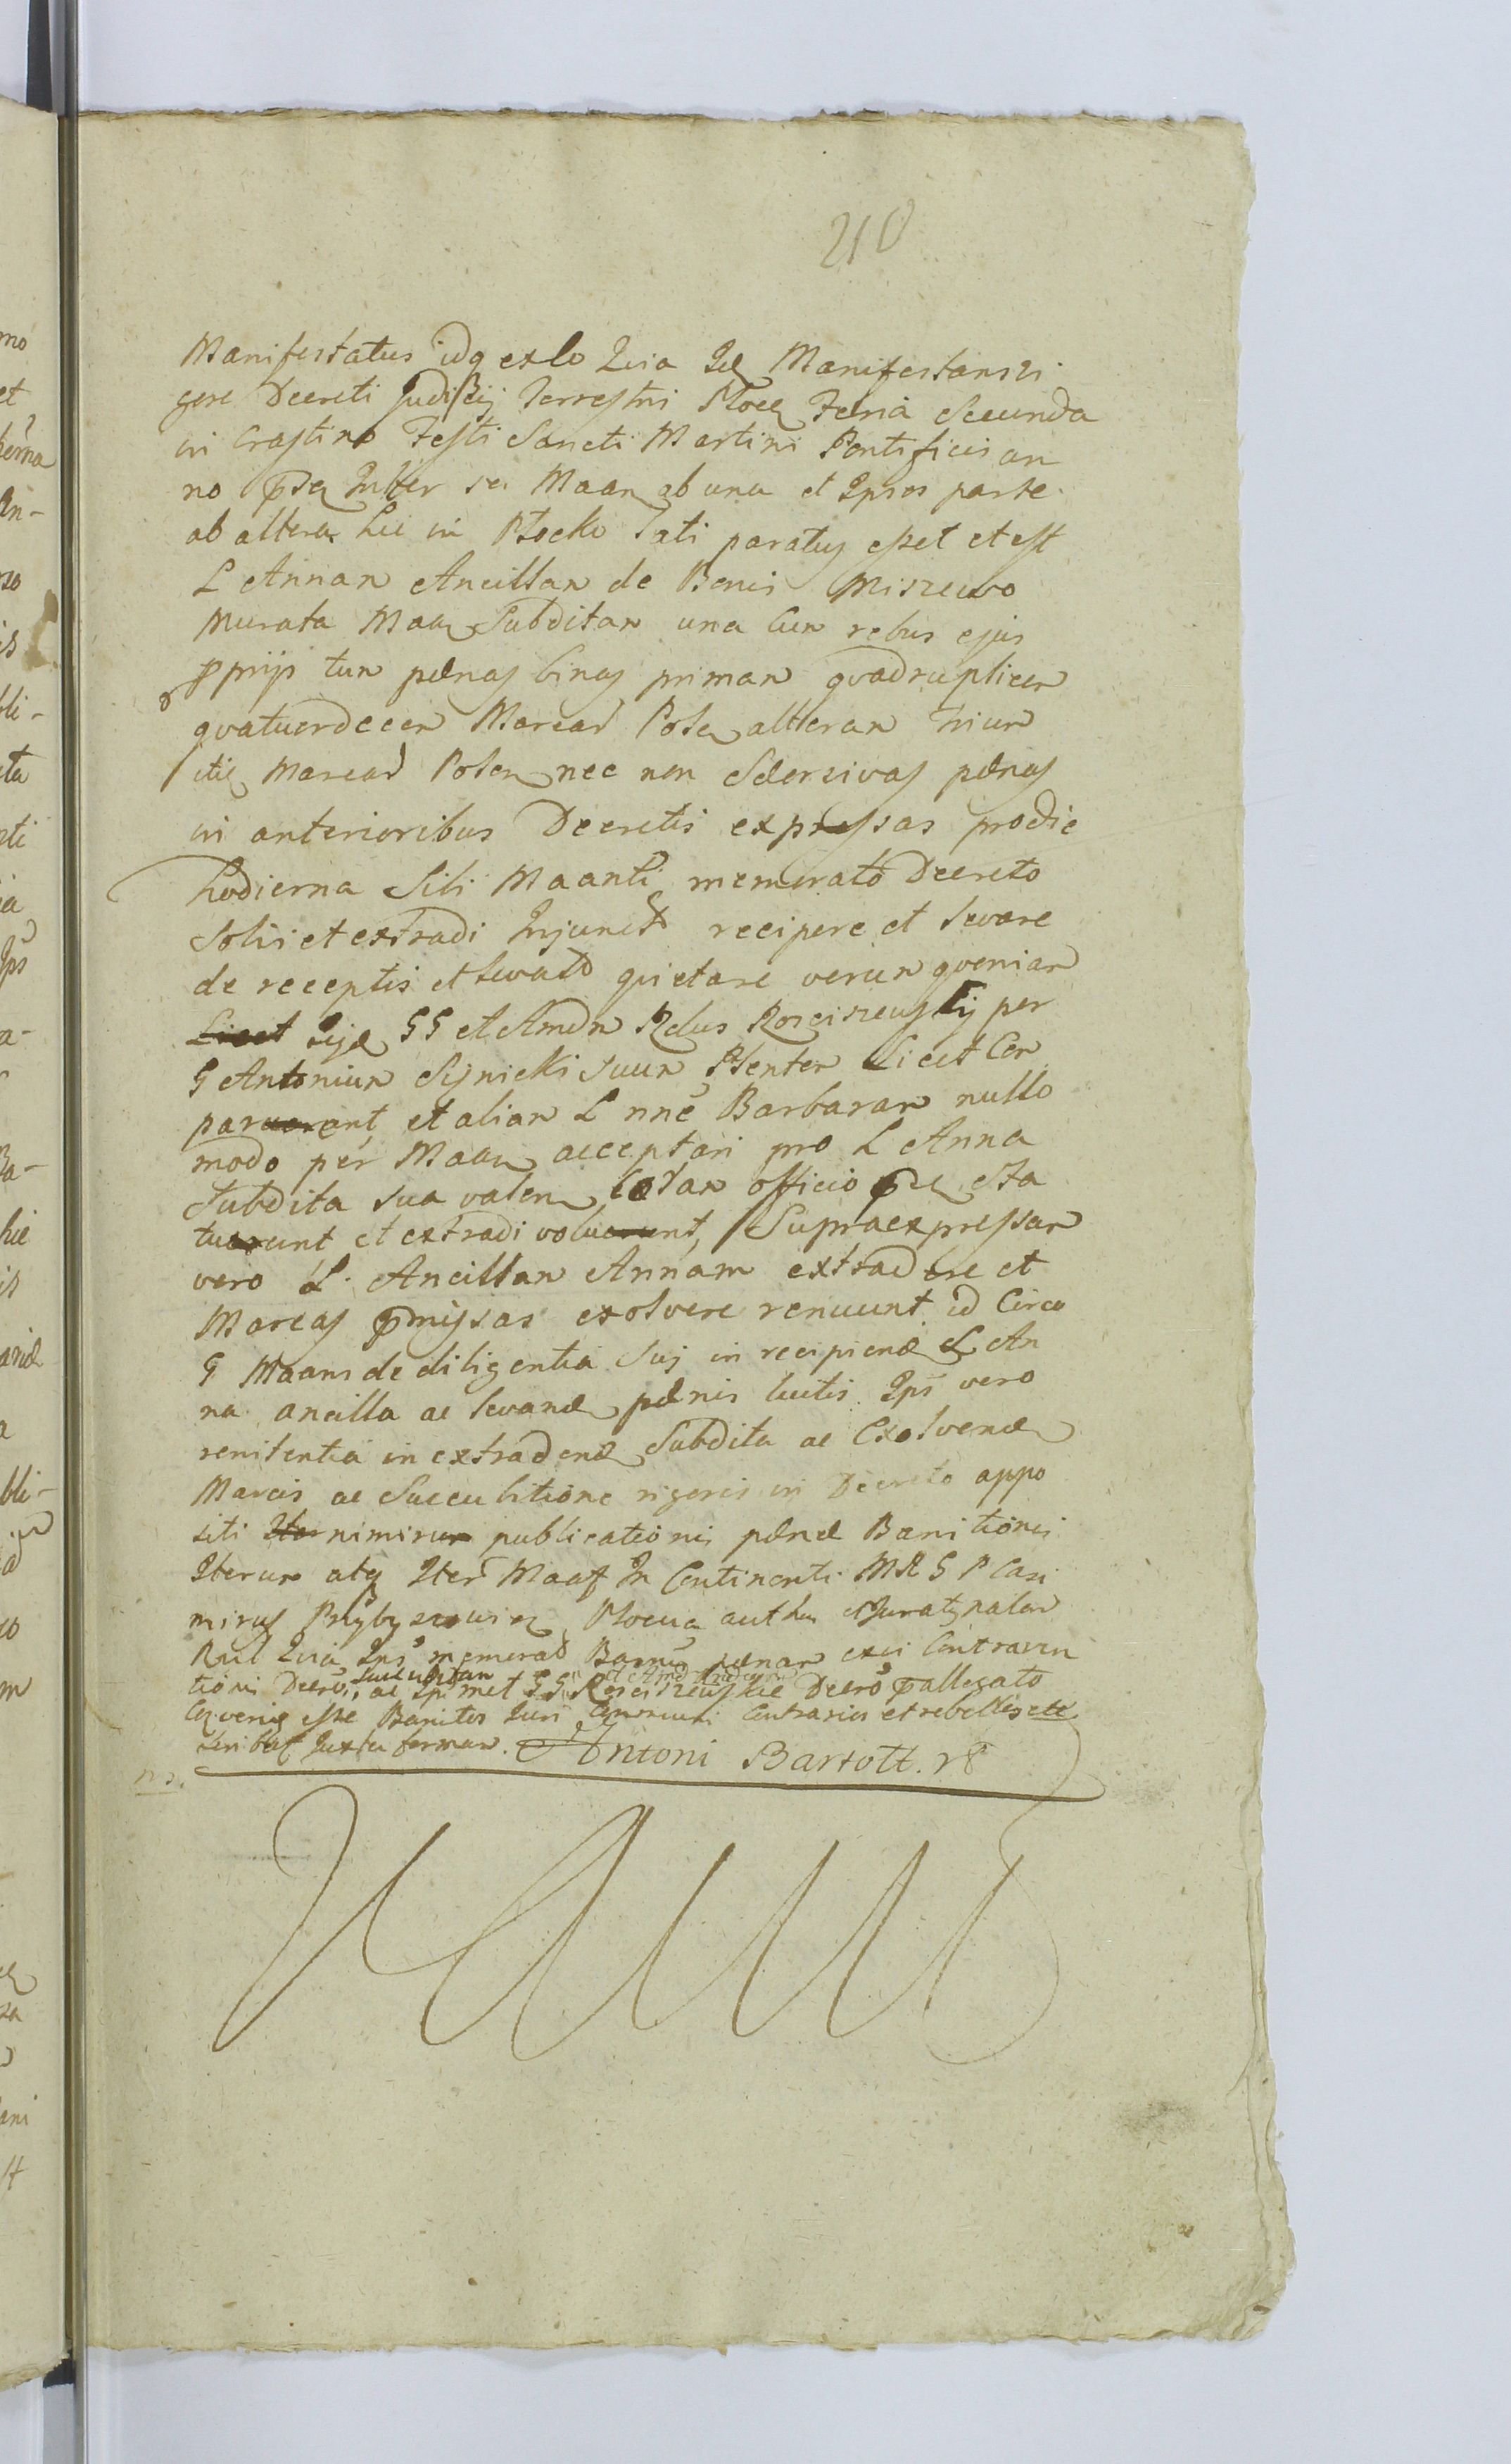 210
Manifestatus idq exlo Quia Ge Manifestans vi
gore Decreti Judicij Terrestri Ploce Feria Secunda
in Crastino Festi Sancti Martini Pontificis an
no pste Inter se Maan ab una et Ipsos parte
ab altera hic in Plocko lati paratus esset et est
L Annan Ancillan de Bonis Miszewo
Murata Maan Subditan una Cun rebus ejus
pprijs tun pænas binas priman qvadruplicen
qvatuordecen Marcar Polen alteran triun
itie Marcar Polen nec non Seersivas pænas
in anterioribus Decretis expressas pro die
hodierna Sibi Maanti memorato Decreto
Solvi et extradi Injunct recipere et levare
de receptis et levatis qvietare verun qveniam
Licet Ijde GG et Amdn Rdus Rosciszewskij per
G Antoniun Sijnicki suun Plenten Licet Con
paruerant, et alian L nne Barbaran nullo
modo per Maan acceptari pro L Anna
Subdita sua valen Coran officio pde sta
tuerunt et extradi voluerunt, Supraexpressan
vero L. Ancillan Annam extradere et
Marcas pmissas exolvere renuunt id Circo
G Maans de diligentia Sui in recipiend L An
na ancilla ac levand pænis luitis Ips vero
renitentia in extradend Subdita ac Exolvend
Marcis ac Succubitione rigoris in Decreto appo
siti nimirun publicationis pænæ Banitionis
Iterun atq Iter Maaf In Continenti MRGP Casi
mirus Przybyszewski Plocen auth et Juraty palan
Reul Quia Ips memorat Bannis pænan exci Contraven
Succubitan et Amd
tionis Decreti, ac Ipsimet GG Rosciszewskie Decro pallegato
Coqvenie esse Banitos Juri Comuni Contrarios et rebelles etc
scribat Juxta forman. Antoni Bartolt. r8
ns.